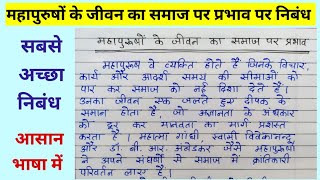 महापुरुषों के जीवन का समाज पर प्रभाव पर निबंध
सबसे
अच्छा
निबंध
आसान
भाषा में
महापुरुषों के जीवन का समाज पर प्रभाव
महापुरुष वे व्यक्ति होते हैं जिनके विचार,
कार्य और आदर्श समय की सीमाओं को
पार कर समाज को नई दिशा देते हैं।
उनका जीवन एक जलते हुए दीपक के
समान होता है, जो अज्ञानता के अंधकार
को दूर कर मानवता का मार्ग प्रशस्त
करता है। महात्मा गांधी, स्वामी विवेकानन्द
और डॉ. बी. आर. अंबेडकर जैसे महापुरुषों
ने अपने संघर्षों से समाज में क्रांतिकारी
परिवर्तन लाए हैं।